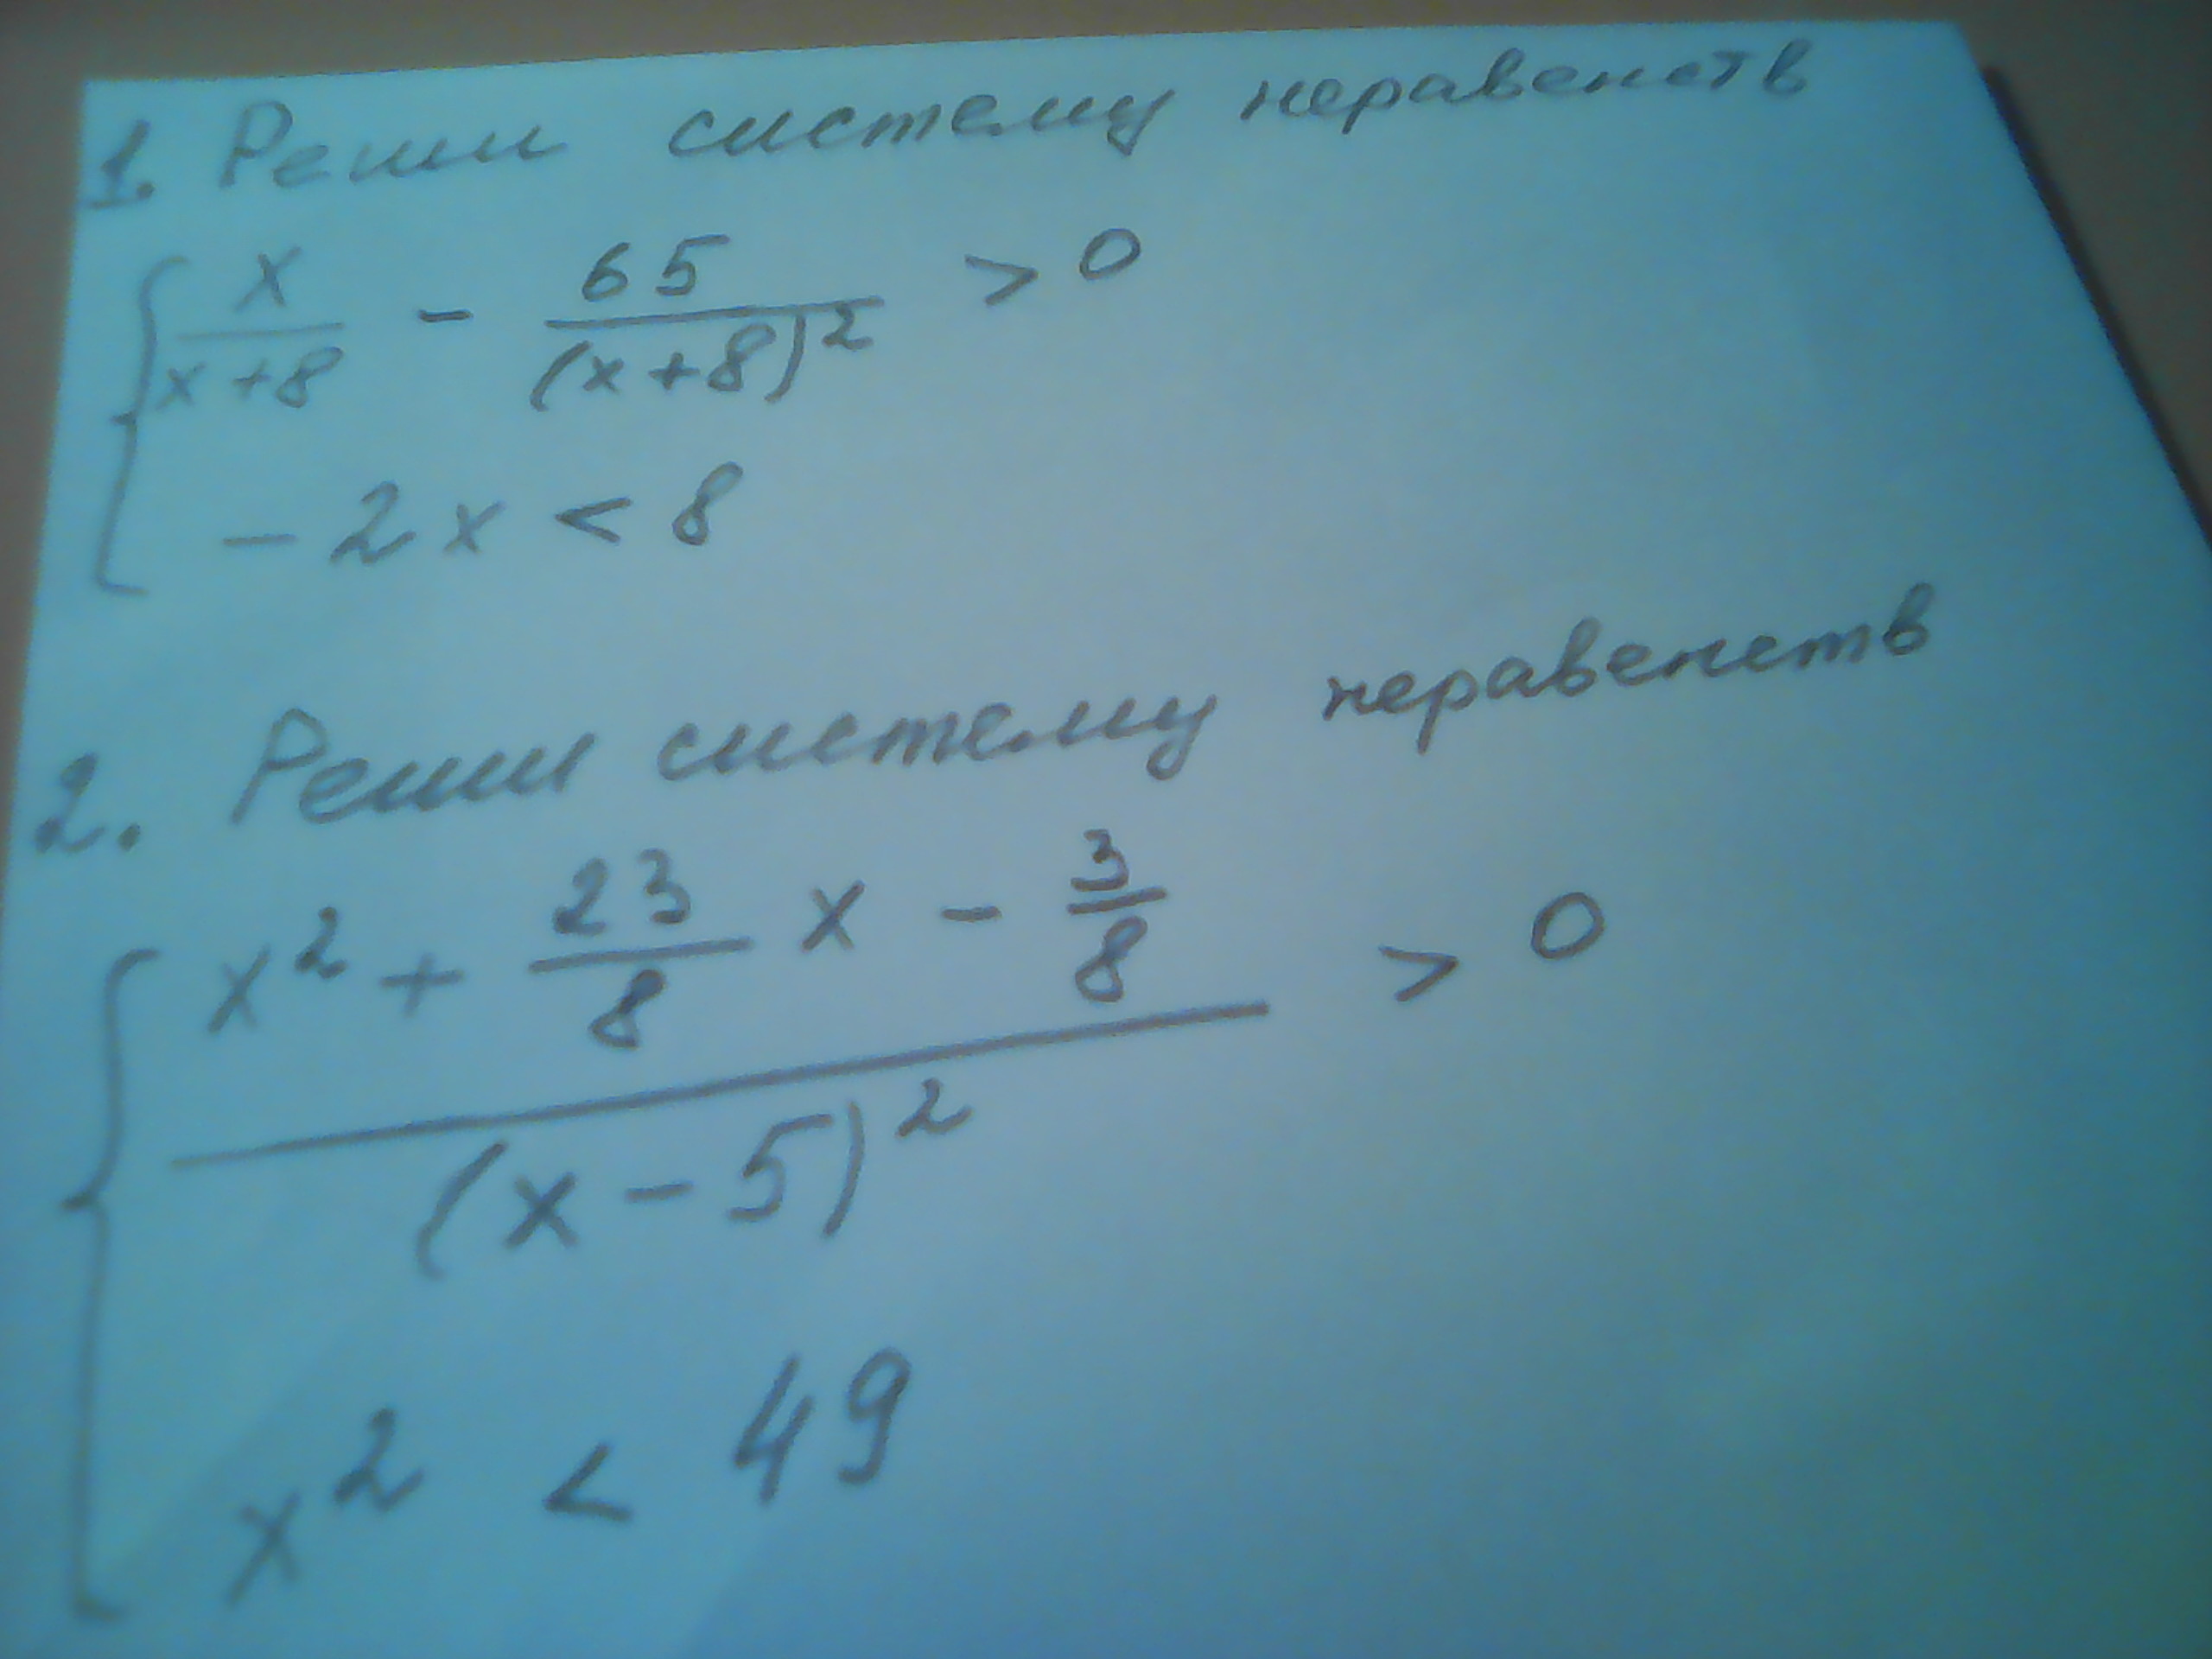 1. Реши систему неравенств
{ x/(x+8) - 65/(x+8)² > 0
- 2x < 8
2. Реши систему неравенств
{ (x² + 23/8 x - 3/8)/(x - 5)² > 0
x² < 49